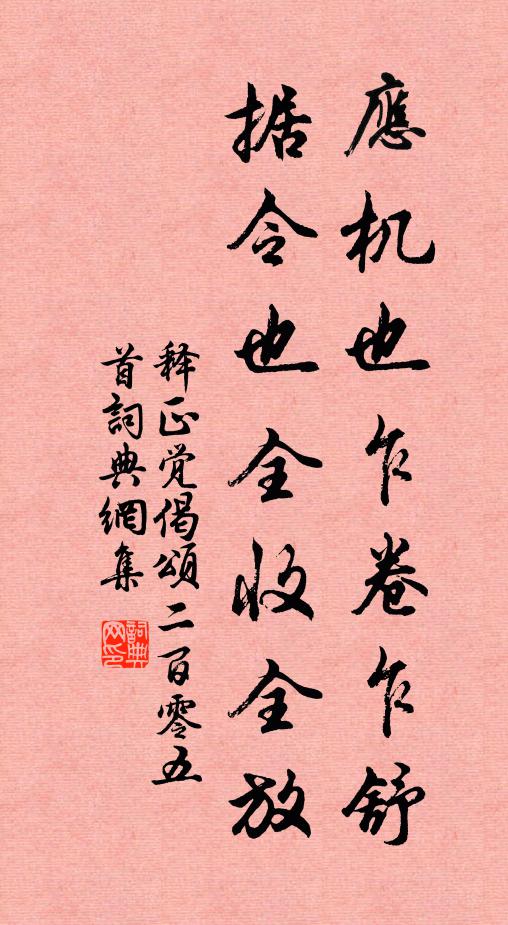 應机也乍卷乍舒
据令也全收全放
释正覚偈頌二百零五
首詞典網集
詞典
网印